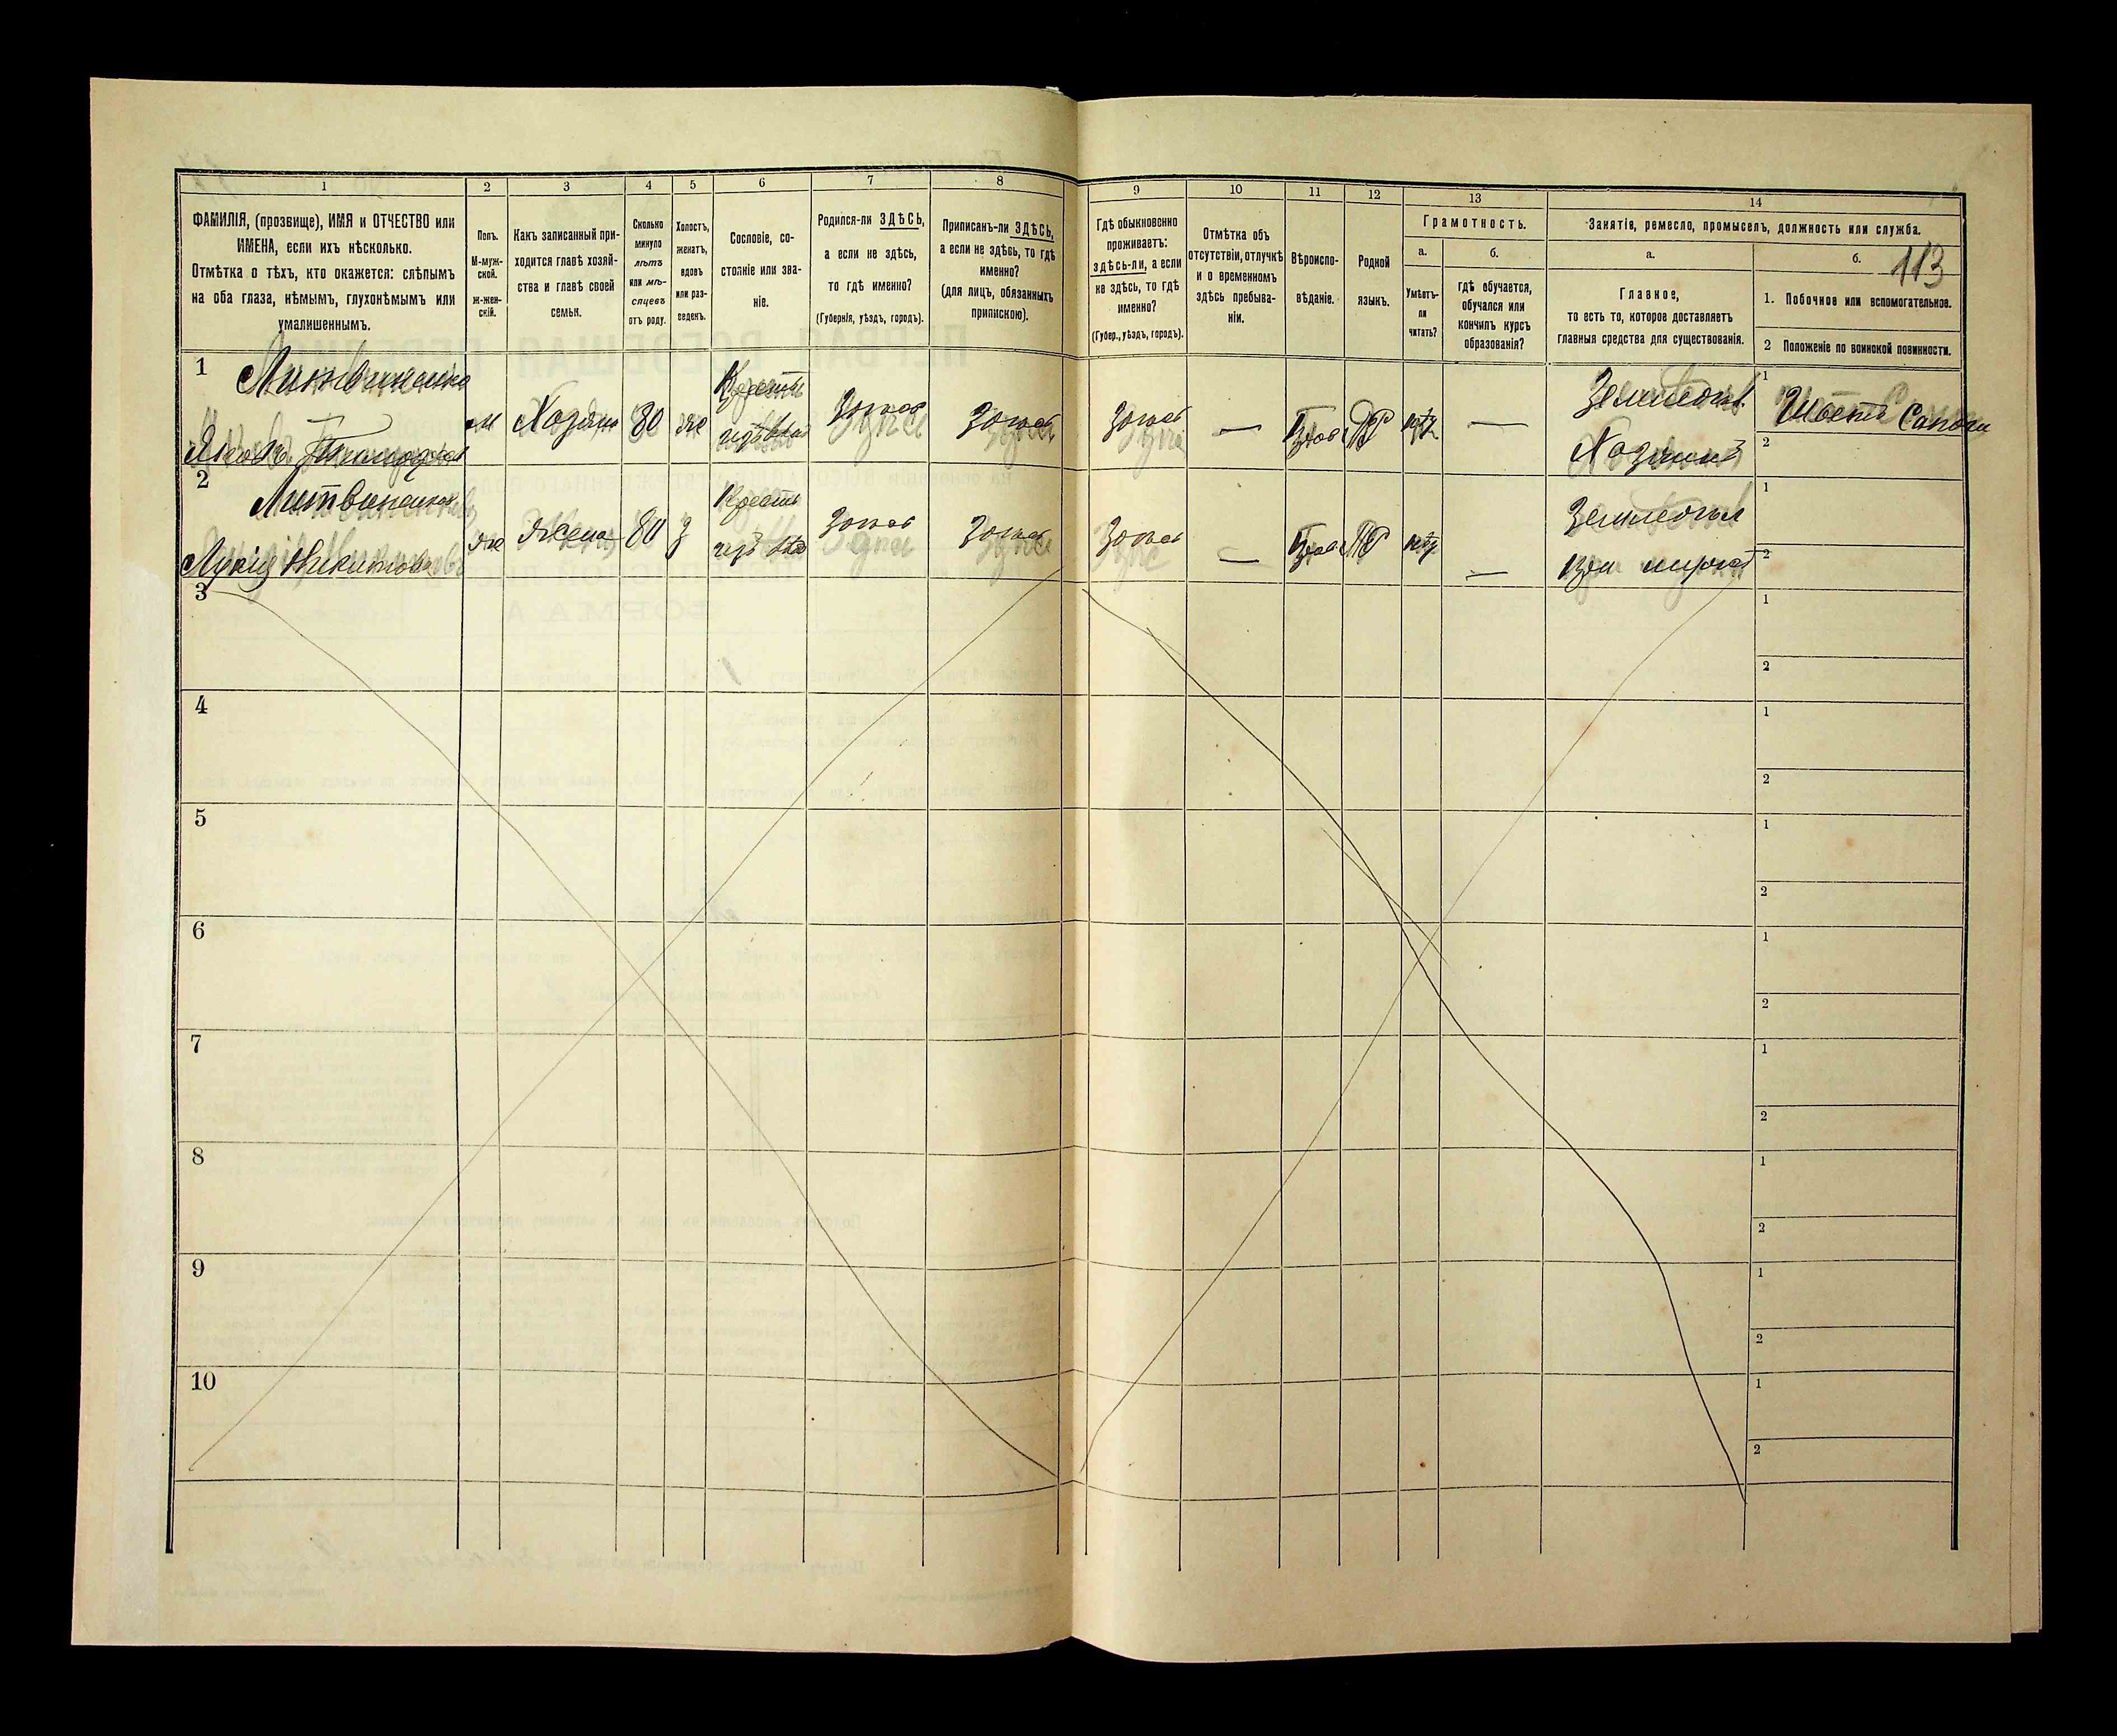 1 2 3 4 5 6 7 8 9 10 11 12 13 14
ФАМИЛІЯ, (прозвище), ИМЯ и ОТЧЕСТВО или
ИМЕНА, если ихъ нѣсколько.
Отмѣтка о тѣхъ, кто окажется: слѣпымъ
на оба глаза, нѣмымъ, глухонѣмымъ или
умалишеннымъ.
Полъ.
М-муж-
ской.
ж-жен-
скій.
Какъ записанный при-
ходится главѣ хозяй-
ства и главѣ своей
семьи.
Сколько
минуло
лѣтъ
или мѣ-
сяцевъ
отъ роду.
Холостъ,
женатъ,
вдовъ
или раз-
веденъ.
Сословіе, со-
стояніе или зва-
ніе.
Родился-ли ЗДѢСЬ,
а если не здѣсь,
то гдѣ именно?
(Губернія, уѣздъ, городъ).
Приписанъ-ли ЗДѢСЬ,
а если не здѣсь, то гдѣ
именно?
(для лицъ, обязанныхъ
припискою).
Гдѣ обыкновенно
проживаетъ:
здѣсь-ли, а если
не здѣсь, то гдѣ
именно?
(Губер., уѣздъ, городъ).
Отмѣтка объ
отсутствіи, отлучкѣ
и о временномъ
здѣсь пребыва-
ніи.
Вѣроиспо-
вѣданіе.
Родной
языкъ.
Грамотность.
а.
Умѣетъ-
ли
читать?
б.
гдѣ обучается,
обучался или
кончилъ курсъ
образованія?
Занятіе, ремесло, промыселъ, должность или служба.
а.
Главное,
то есть то, которое доставляетъ
главныя средства для существованія.
б.
113
1. Побочное или вспомогательное.
2 Положеніе по воинской повинности.
1
Литвиненко
Яковъ
м
Хозяин
80
же
1
Шьетъ Сапоги
2
Хозяинъ
2
Литвиненкова
Лукія Никитова
же
жена
80
з
1
2
при мужѣ
3
1
2
4
1
2
5
1
2
6
1
2
7
1
2
8
1
2
9
1
2
10
1
2